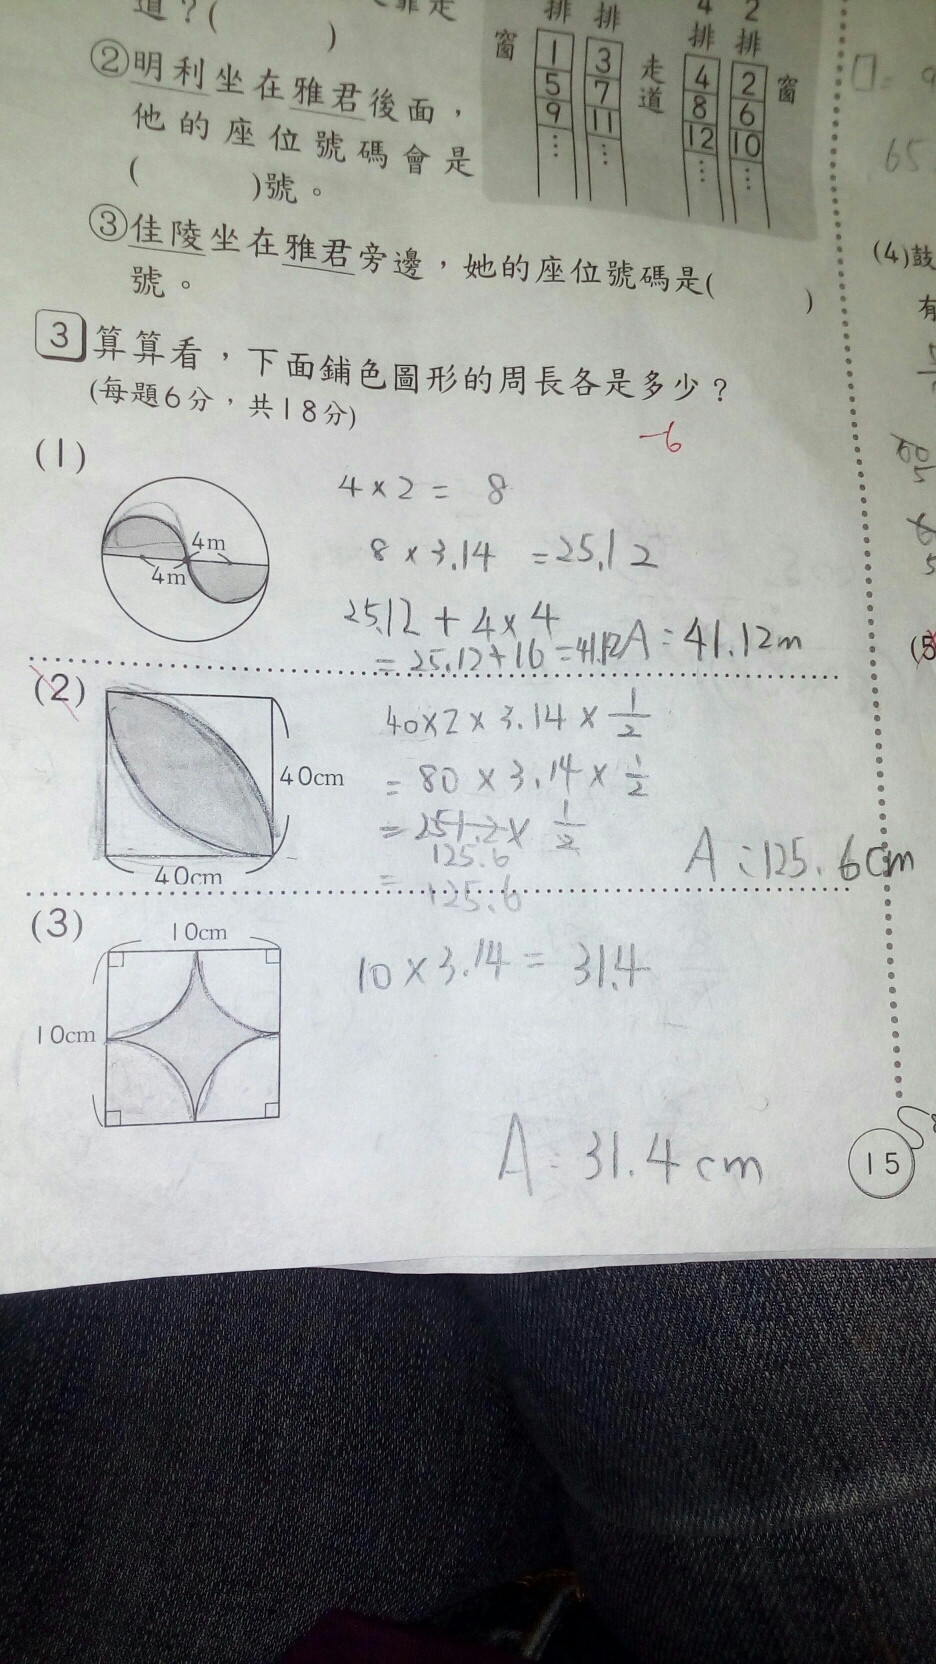 道？(　　)
靠走
②明利坐在雅君後面，
他的座位號碼會是
(　　)號。
窗
排 排
4 2
排 排
1 3
5 7
9 11
⋮ ⋮
走道
4 2
8 6
12 10
⋮ ⋮
窗
③佳陵坐在雅君旁邊，她的座位號碼是(　　)
號。
3 算算看，下面鋪色圖形的周長各是多少？
(每題6分，共18分)
-6
(1)
4m
4m
4×2= 8
8×3.14 =25.12
25.12+4×4
=25.12+16=41.12 A:41.12m
(2)
40cm
40cm
40×2×3.14×1/2
=80×3.14×1/2
=251.2×1/2
125.6
=125.6
A:125.6cm
(3)
10cm
10cm
10×3.14= 31.4
A:31.4cm
65
(4)鼓
有
(5
15